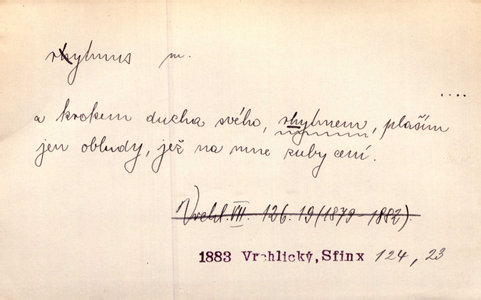 rhytmus m.
....
a krokem ducha svého, rhytmem, plaším
jen obludy, jež na mne zuby cení.
Vrchl. VII 126.19 (1879–1882).
1883 Vrchlický, Sfinx 124, 23